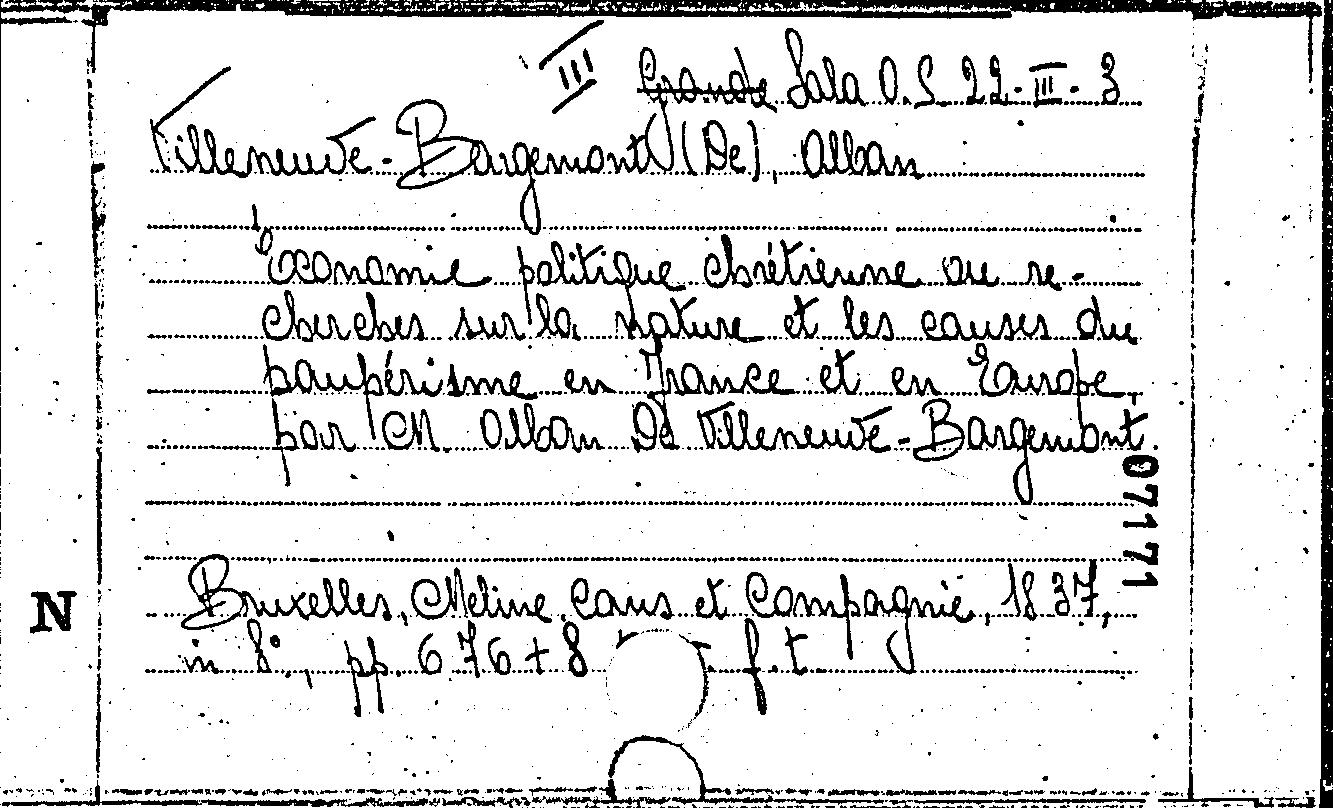 III Grande Sala O.S. 22-III-3
Villeneuve-Bargemont (De), Alban
Économie politique chrétienne ou re-
cherches sur la nature et les causes du
paupérisme en France et en Europe,
par M. Alban De Villeneuve-Bargemont.
07171
N
Bruxelles, Meline, Cans et Compagnie, 1837,
in 8°, pp. 676+8 f.t.